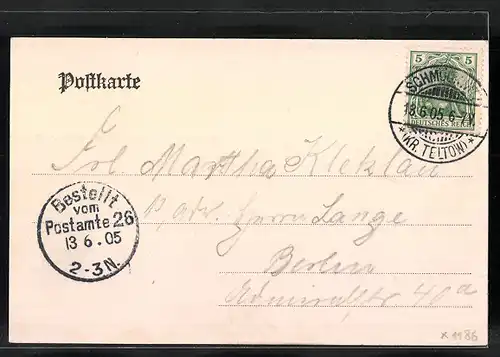 Postkarte
5 5
DEUTSCHES REICH
SCHMÖCKWITZ
13.6.05 6-7V
*(KR. TELTOW)*
Frl. Martha Kleklau
p. adr. Herrn Lange
Berlin
Admiralstr 40a
Bestellt
vom
Postamte 26
13 6.05
2-3N.
x 1186